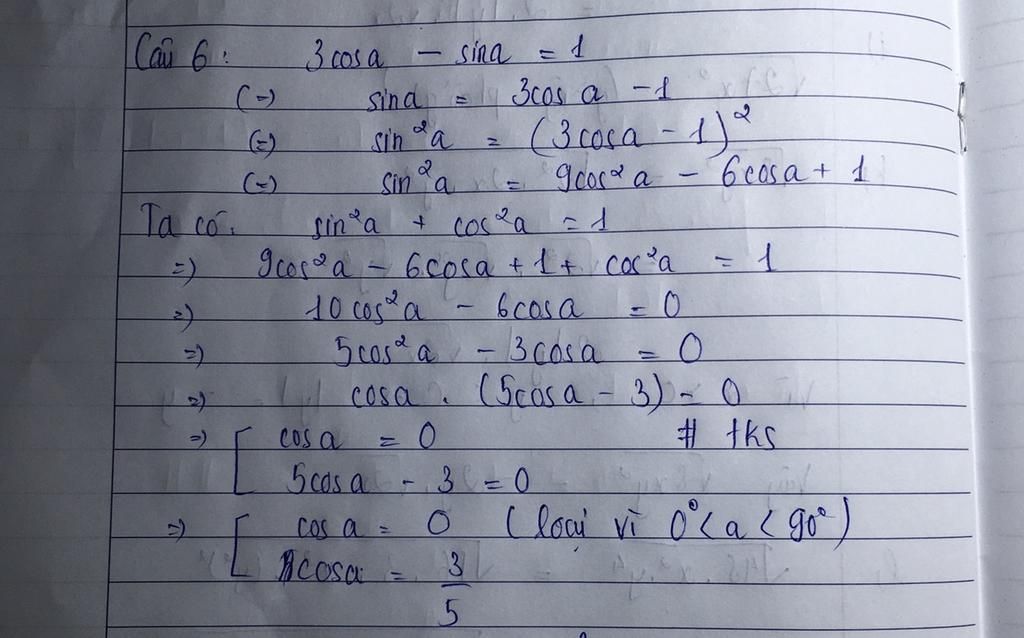 Câu 6: 3cosa - sina = 1
(=) sina = 3cos a - 1
(=) sin²a = (3cosa - 1)²
(=) sin²a = 9cos²a - 6cosa + 1
Ta có: sin²a + cos²a = 1
=) 9cos²a - 6cosa + 1 + cos²a = 1
=) 10cos²a - 6cosa = 0
=) 5cos²a - 3cosa = 0
=) cosa . (5cosa - 3) = 0
=) [ cosa = 0 # tks
5cosa - 3 = 0
=) [ cos a = 0 (loại vì 0° < a < 90°)
cosa = 3/5